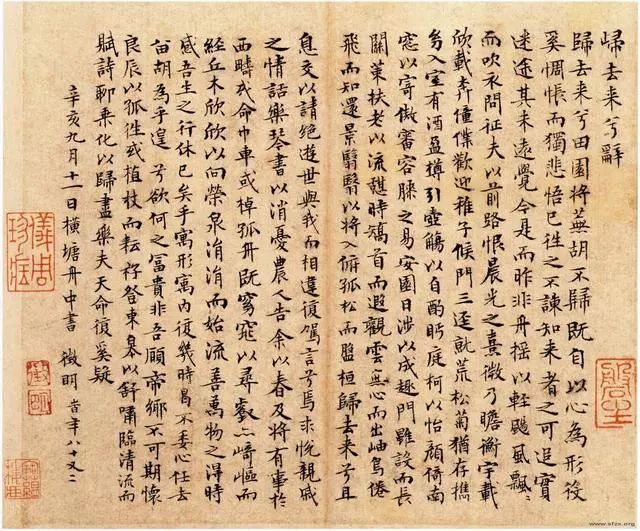 歸去来兮辭
歸去来兮田園將蕪胡不歸既自以心為形役
奚惆悵而獨悲悟已往之不諫知来者之可追實
迷途其未遠覺今是而昨非舟摇以輕颺風飄飄
而吹衣問征夫以前路恨晨光之熹微乃瞻衡宇載
欣載奔僮僕歡迎稚子候門三逕就荒松菊猶存携
幼入室有酒盈樽引壺觴以自酌眄庭柯以怡顔倚南
窓以寄傲審容膝之易安園日涉以成趣門雖設而長
關策扶老以流憩時矯首而遐觀雲無心而出岫鳥倦
飛而知還景翳翳以將入孤松而盤桓歸去来兮且
息交以請絶遊世與我而相違復駕言兮焉求悦親戚
之情話樂琴書以消憂農人告余以春及將有事於
西疇或命巾車或棹孤舟既窈窕以尋壑亦崎嶇而
經丘木欣欣以向榮泉涓涓而始流善萬物之得時
感吾生之行休已矣乎寓形寓內復幾時曷不委心任去
留胡為乎遑兮欲何之富貴非吾願帝鄉不可期懷
良辰以孤往或植杖而耘耔登東皋以舒嘯臨清流而
賦詩聊乘化以歸盡樂夫天命復奚疑
辛亥九月十一日横塘舟中書 徵明 年八十又二
徵明